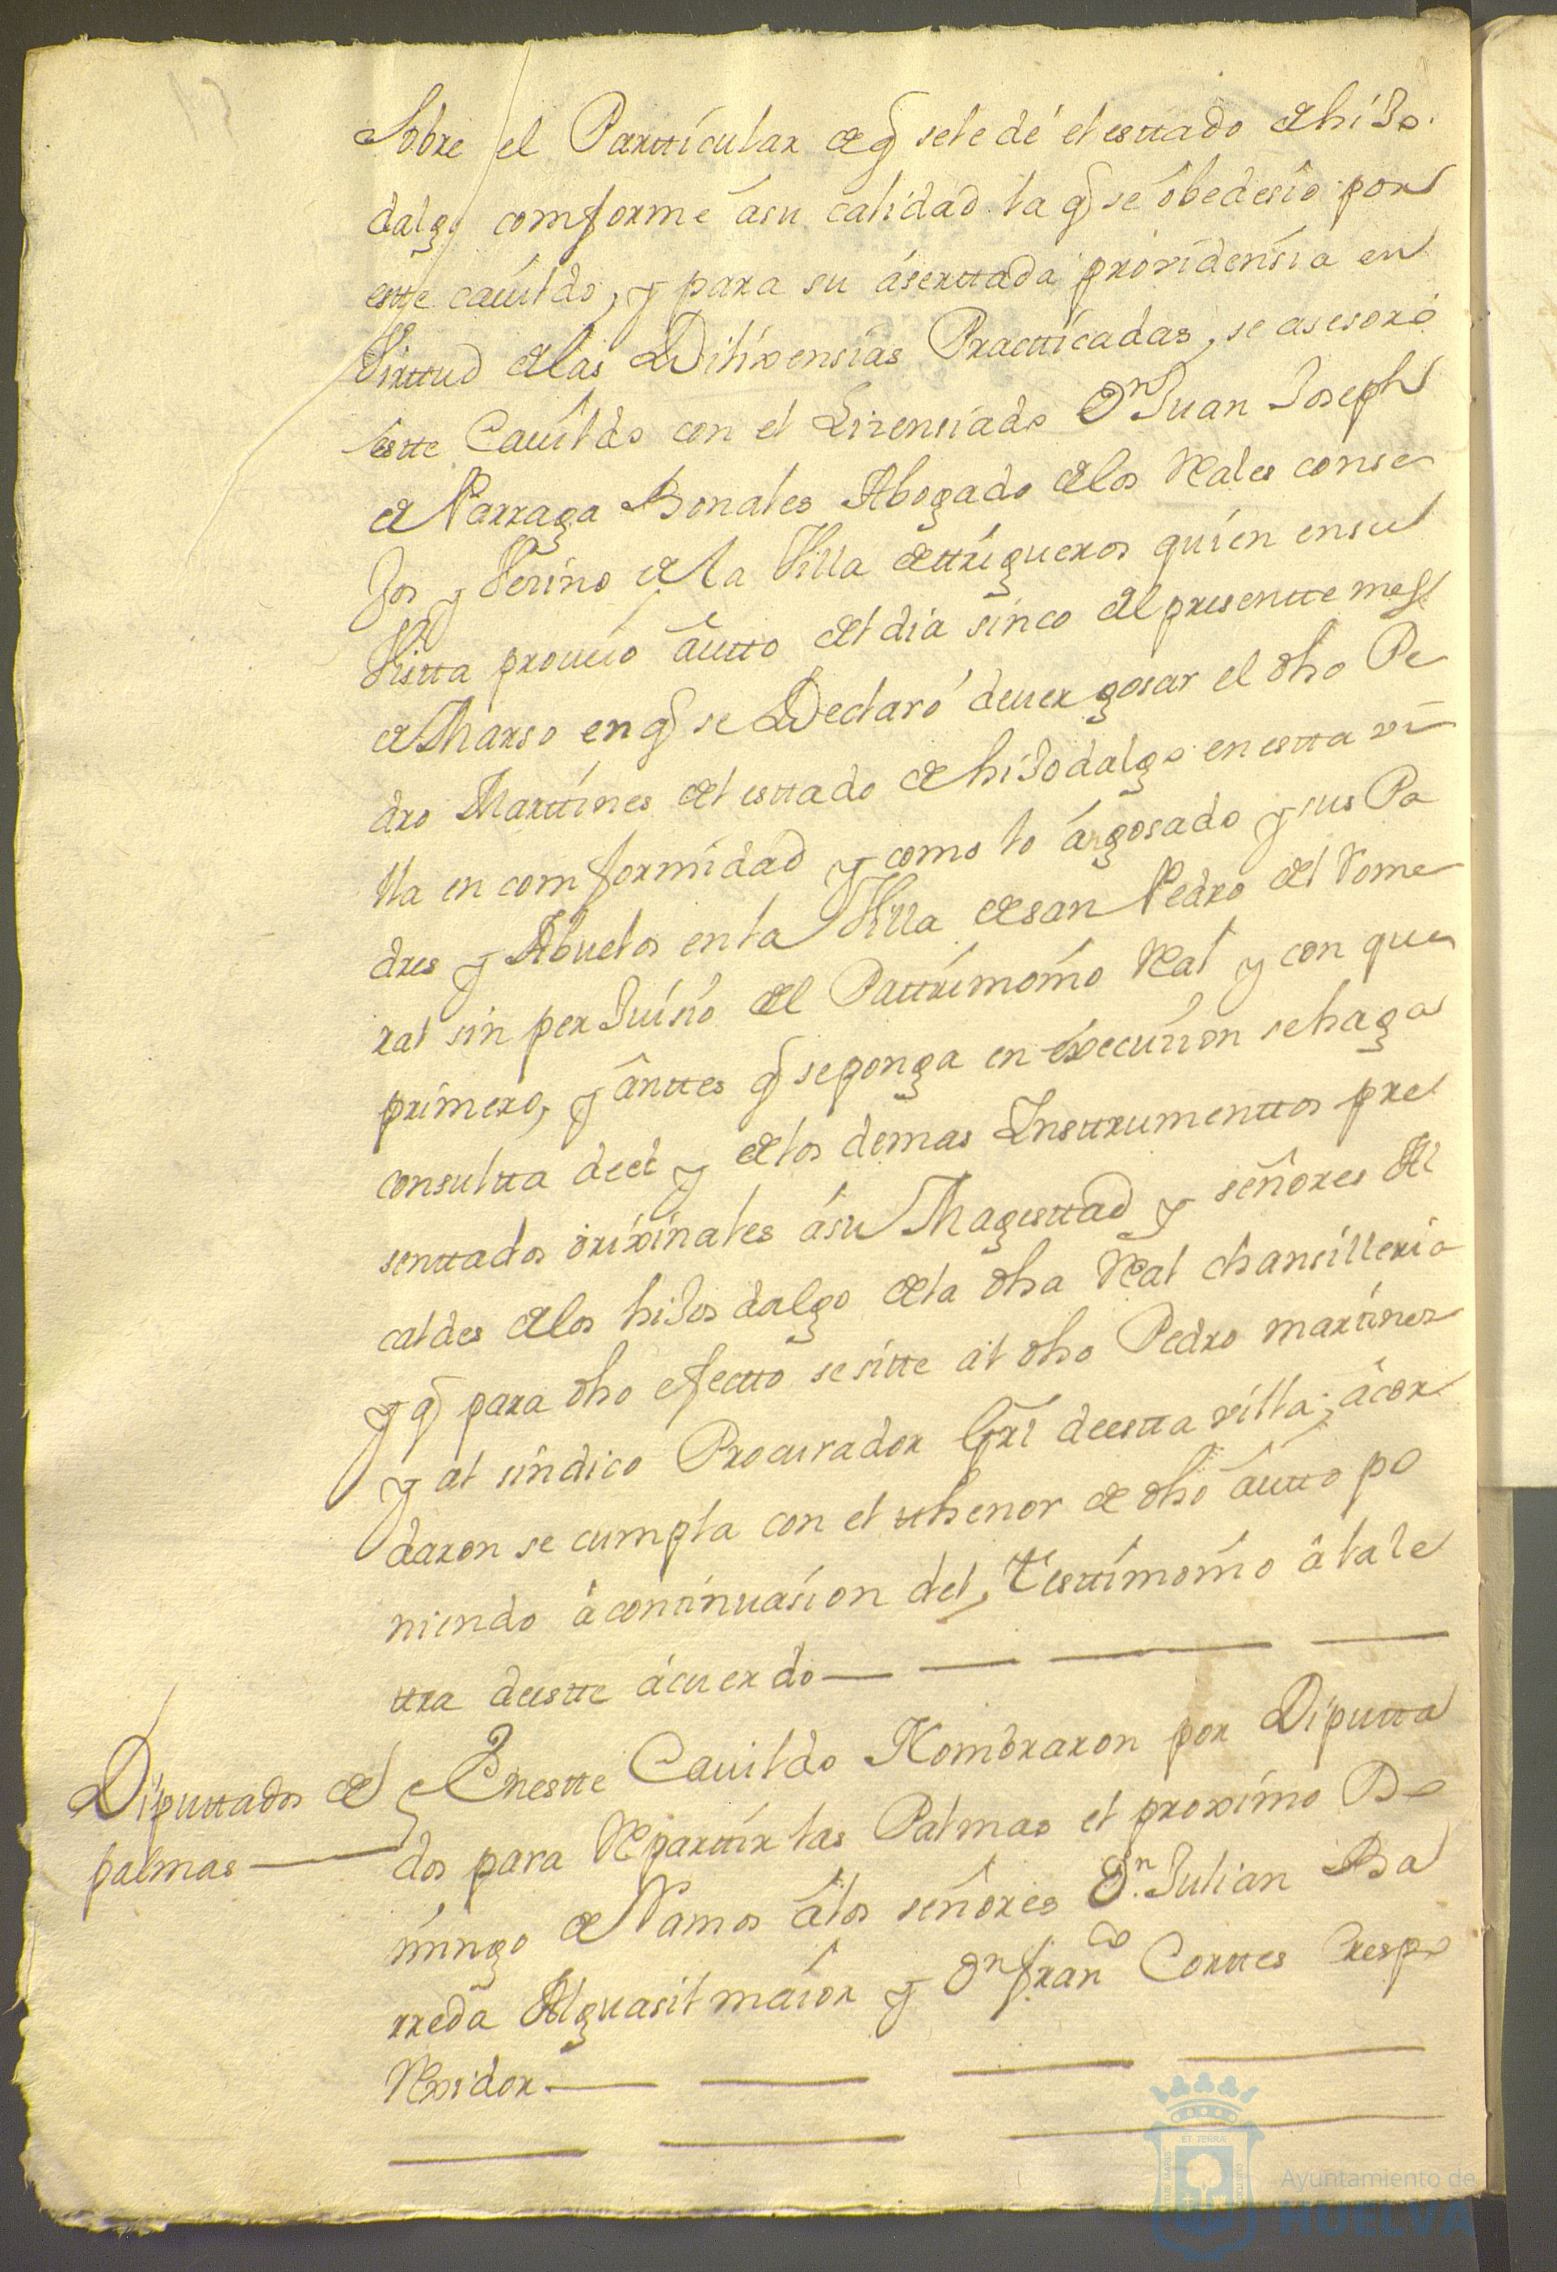 Sobre el Partticular de q̃ sele dé el esttado de hiJo.
dalgo comforme ásu calidad la q̃ se óbedesio por
estte cauildo, y para su ásserttada providensia en
Virttud de las Dilixensias Practticadas, se asesoró
estte Cauildo con el Lisensiado Dn Juan Joseph
de Parraga Bonales Abogado de los Rales conse
Jos y Vecino de la Villa de ttrigueros quien en su
Vistta proueio áutto del dia sinco del presentte mes
de Marso en q̃ se Declaró deuer gosar el dho Pe
dro Marttines del esttado de hiJodalgo en estta vi
lla en comformidad y como lo á gosado y sus Pa
dres y Abuelos en la Villa de san Pedro del Rome
ral sin perJuisio del Pattrimonio Ral y con que
primero, y ánttes q̃ se ponga en execucion se haga
consultta de el y de los demas Insttrumenttos pre
senttados orixinales ásu Magesttad y señores Al
caldes de los hiJos dalgo de la dha Ral chansilleria
y q̃ para dho efectto se sitte al dho Pedro martines
y al sindico Procurador Grl de estta villa; ácor
daron se cumpla con el thenor de dho áutto po
niendo á continuasion del, Testtimonio á la le
ttra de estte ácuerdo
Diputtados de
palmas
En estte Cauildo Nombraron por Diputta
dos para Reparttir las Palmas el proximo Do
mingo de Ramos á los señores Dn. Julian Ba
rreda Alguasil maior y Dn franco Corttes Crespo
Rexidor
ET TERRA
Ayuntamiento de
HUELVA